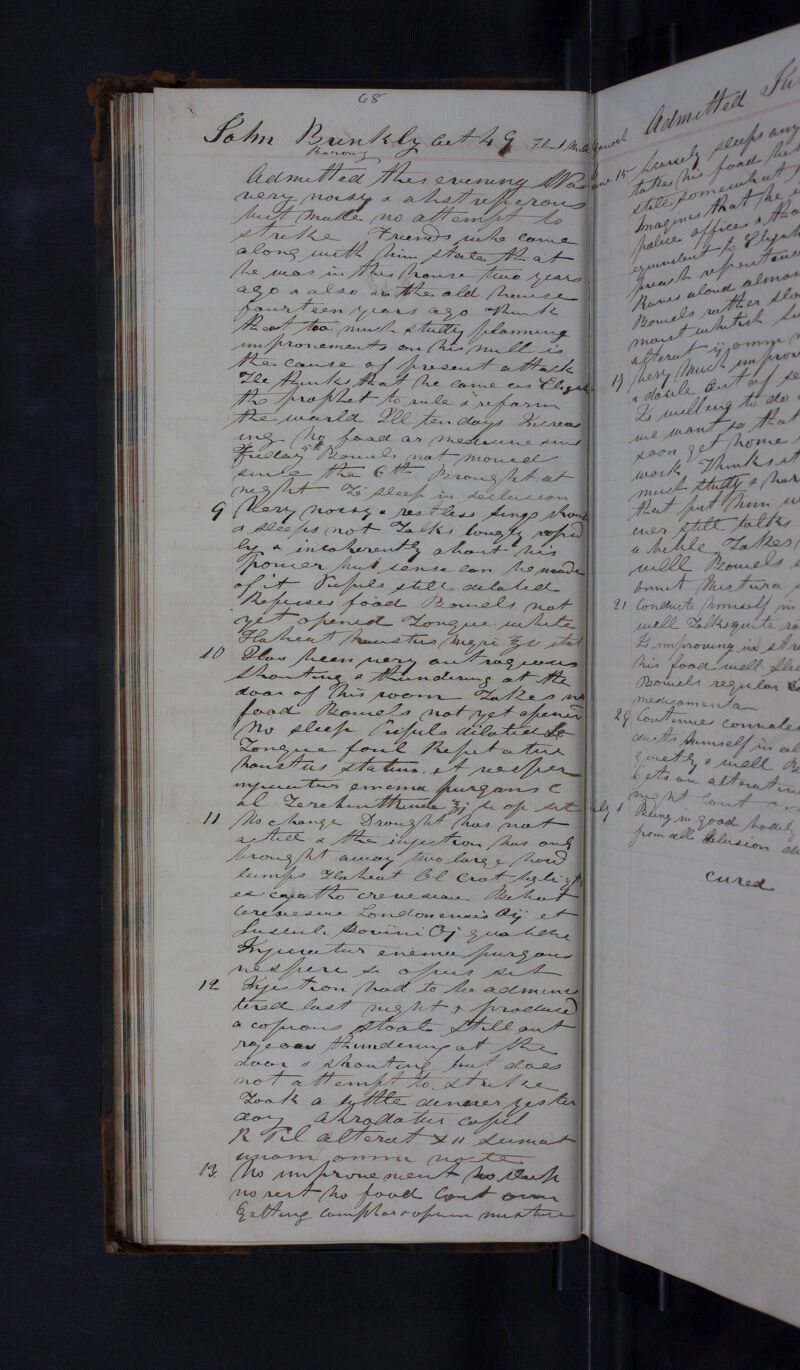 68
John Brinkly aet 49
Admitted this evening Was
very noisy & obstreperous
but made no attempt to
strike Friends who came
along with him state that
he was in this house two years
ago & also in the old house
fourteen years ago Think
that too much study planning
improvements on his mill is
the cause of present attack
He thinks that he came as Elijah
the prophet to rule & reform
the world Ill ten days Increas
ing No food or medicine since
Friday 5th Bowels not moved
since the 6th Brought at
night To sleep in seclusion
9 Very noisy & restless Sings shouts
& sleeps not Talks rapid
ly & incoherently about his
power but sense can be made
of it Pupils still dilated
Refuses food Bowels not
yet opened Tongue white
Habeat Haustus Nigri
10 Has been very outrageous
shouting & thundering at the
door of his room Takes no
food Bowels not yet opened
No sleep Pupils dilated
Tongue foul Repetatur
haustus statim et vesper
injiciatur enema purgans c
ol Terebinthinae si op sit
11 No change Draught has not
acted & the injection has only
brought away two large hard
lumps Habeat Ol Crot
ex cyatho cerevisiae Bibat
Cerevisiae Londonensis Oij et
Jusculi Bovini Oj
Injiciatur enema purgans
vespere si opus sit
12 Injection had to be adminis
tered last night & produced
a copious stool Still out
rageous thundering at the
door & shouting but does
not attempt to strike
Took a little dinner yester
day Abradatur caput
R Pil alterat xii Sumat
unam omni nocte
13. No improvement No sleep
no rest No food Cont omn
Getting camphor & opium mixture
Admitted
June 15 Scarcely sleeps any
takes his food
still somewhat
Imagines that he
police office & tha
equivalent to Elijah
preach repentance
Raves aloud almos
Bowels rather slow
moist whitish
alterat ij omni n
17 Very much improv
& docile Out of se
Is willing to do
we want so that
soon get home
work Thinks it
much study & har
that put him
ever still talks
a bible Takes
well Bowels
Omit Mistura
21 Conducts himself in
well Talks quite ra
Is improving in stre
his food well Slee
Bowels regular
medicamenta
29 Continues convales
ducts himself in al
quietly & well B
Gets an alterative
night Cont om
July 1 Being in good bodily
from all delusion
cured